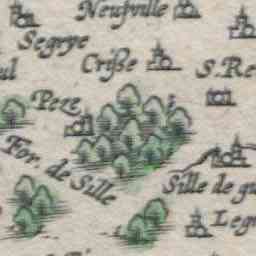 Neufville
Segrye
Crisse
S. Re
Peze
For. de Sille
Sille de gu
Leg